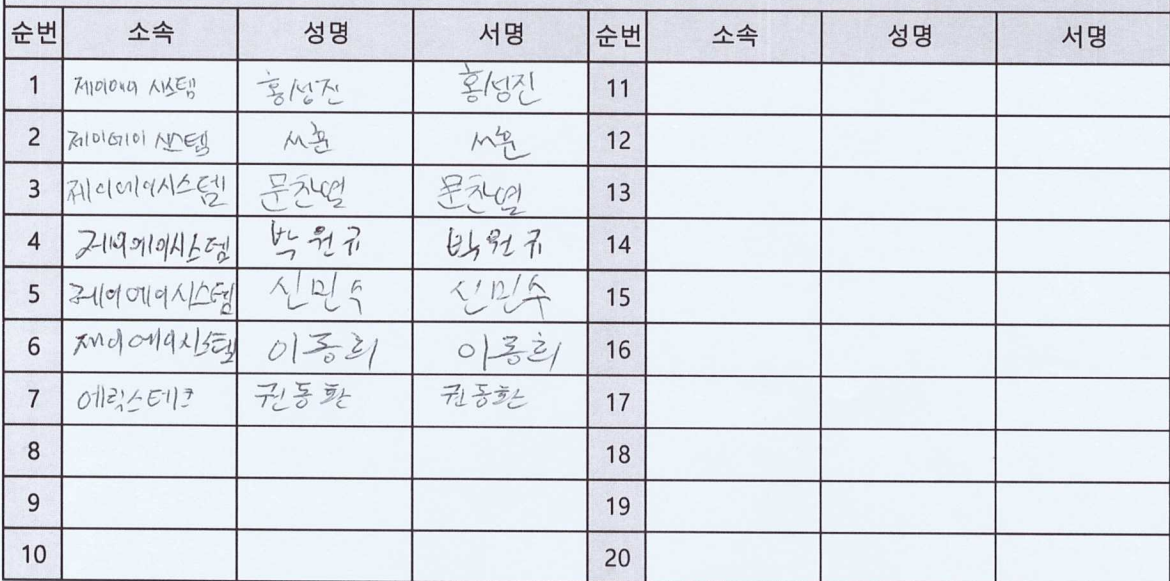 순번 소속 성명 서명 순번 소속 성명 서명
1 제이에이 시스템 홍성진 홍성진 11
2 제이에이 시스템 서훈 서훈 12
3 제이에이시스템 문찬열 문찬열 13
4 제이에이시스템 박원규 박원규 14
5 제이에이시스템 신민수 신민수 15
6 제이에이시스템 이동희 이동희 16
7 에릭스테크 권동환 권동환 17
8 18
9 19
10 20